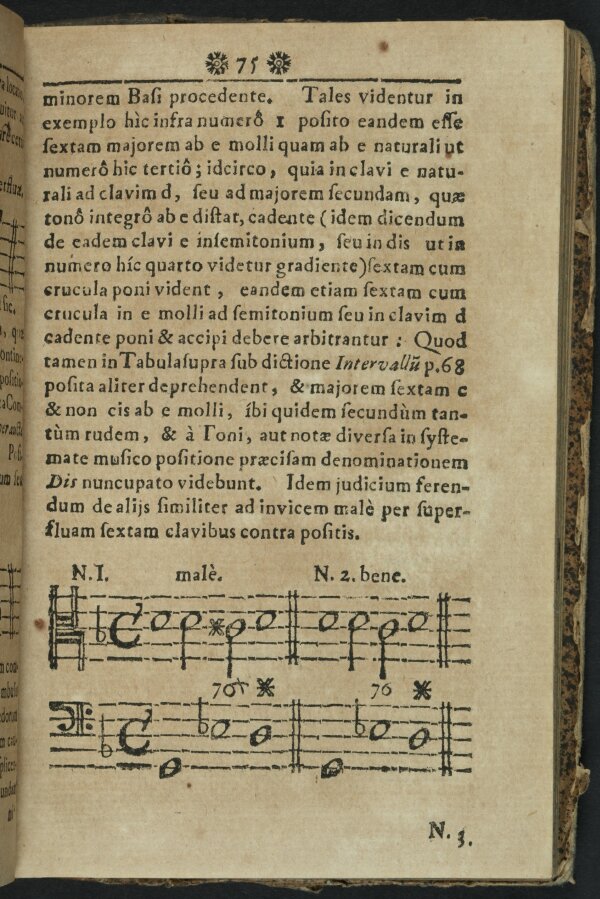 75
minorem Basi procedente. Tales videntur in
exemplo hìc infra numerô 1 posito eandem esse
sextam majorem ab e molli quam ab e naturali ut
numerô hìc tertiô; idcirco, quia in clavi e natu-
rali ad clavim d, seu ad majorem secundam, quæ
tonô integrô ab e distat, cadente (idem dicendum
de eadem clavi e insemitonium, seu in dis ut in
numero híc quarto videtur gradiente) sextam cum
crucula poni vident, eandem etiam sextam cum
crucula in e molli ad semitonium seu in clavim d
cadente poni & accipi debere arbitrantur: Quod
tamen in Tabula supra sub dictione Intervallũ p.68
posita aliter deprehendent, & majorem sextam c
& non cis ab e molli, íbi quidem secundùm tan-
tùm rudem, & à Toni, aut notæ diversa in syste-
mate musico positione præcisam denominationem
Dis nuncupato videbunt. Idem judicium feren-
dum de alijs similiter ad invicem malè per super-
fluam sextam clavibus contra positis.
N.I. malè. N. 2. bene.
76 76
N. 3.